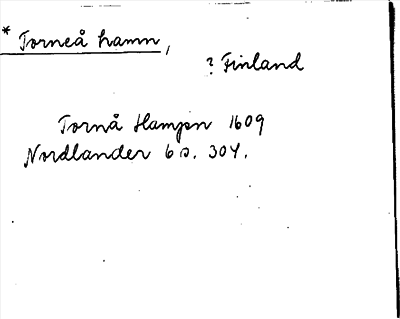 * Torneå hamn,
? Finland
Tornå Hampn 1609
Nordlander 6 s. 304.